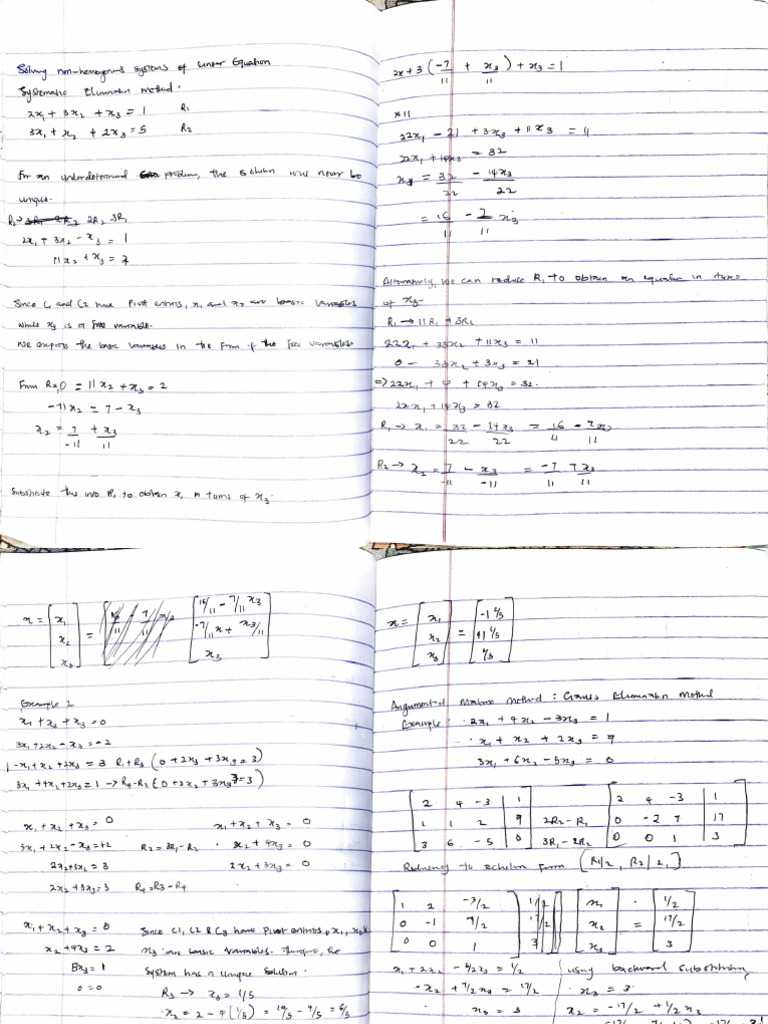 Solving non-homogenous systems of Linear Equation
Systematic Elimination method.
2x₁ + 3x₂ + x₃ = 1 R₁
3x₁ + x₂ + 2x₃ = 5 R₂
For an underdetermined problem, the solution will never be
unique.
R₂→ 2R₂ 3R₁
2x₁ + 3x₂ - x₃ = 1
11x₂ + x₃ = 7
Since C₁ and C2 have Pivot entries, x₁ and x₂ are basic variables
while x₃ is a free variable.
We express the basic variables in the form of the free variables
From R₂, 0 = 11x₂ + x₃ = 2
-11x₂ = 7 - x₃
x₂ = 7/-11 + x₃/11
Substitute this into R₁ to obtain x₁ in terms of x₃.
2x + 3(-7/11 + x₃/11) + x₃ = 1
*11
22x₁ - 21 + 3x₃ + 11x₃ = 11
22x₁ + 14x₃ = 32
x₁ = 32/22 - 14x₃/22
= 16/11 - 7/11 x₃
Alternatively, we can reduce R₁ to obtain an equation in terms
of x₃.
R₁ → 11R₁ + 3R₂
22x₁ + 33x₂ + 11x₃ = 11
0 - 33x₂ + 3x₃ = 21
⇒ 22x₁ + 0 + 14x₃ = 32.
22x₁ + 14x₃ = 32
R₁ → x₁ = 32/22 - 14x₃/22 = 16/11 - 7x₃/11
R₂ → x₂ = 7/-11 - x₃/-11 = -7/11 7x₃/11
x = [x₁ x₂ x₃] = [16/11 - 7/11 x₃ -7/11 x + x₃/11 x₃]
Example 2
x₁ + x₂ + x₃ = 0
3x₁ + 2x₂ - x₃ = -2
-x₁ + x₂ + 2x₃ = 3 R₁ + R₃ (0 + 2x₂ + 3x₃ = 3)
3x₁ + 4x₂ + 2x₃ = 1 → R₄ - R₂ (0 + 2x₂ + 3x₃ = 3)
x₁ + x₂ + x₃ = 0 x₁ + x₂ + x₃ = 0
3x₁ + 2x₂ - x₃ = +2 R₂ = 3R₁ - R₂ x₂ + 4x₃ = 0
2x₂ + 3x₁ = 3 2x₂ + 3x₃ = 0
2x₂ + 3x₃ = 3 R₄ = R₃ - R₄
x₁ + x₂ + x₃ = 0 Since C1, C2 & C3 have pivot entries, x₁, x₂ &
x₂ + 4x₃ = 2 x₃ are basic variables. Therefore, the
5x₃ = 1 System has a unique solution.
0 = 0 R₃ → x₃ = 1/5
x₂ = 2 - 4(1/5) = 10/5 - 4/5 = 6/5
x = [x₁ x₂ x₃] =
Argumented Matrix Method: Gauss Elimination Method
Example: 2x₁ + 4x₂ - 3x₃ = 1
x₁ + x₂ + 2x₃ = 9
3x₁ + 6x₂ - 5x₃ = 0
2 4 -3 | 1 2 4 -3 | 1
1 1 2 | 9 2R2 - R₁ 0 -2 7 | 17
3 6 -5 | 0 3R₁ - 2R2 0 0 1 | 3
Reducing to Echelon form (R1/2, R2/2,)
1 2 -3/2 | 1/2 x₁ 1/2
0 -1 7/2 | 17/2 x₂ = 17/2
0 0 1 | 3 x₃ 3
x₁ + 2x₂ - 3/2x₃ = 1/2 Using backward substitution,
-x₂ + 7/2x₃ = 17/2 x₃ = 3
x₃ = 3 x₂ = -17/2 + 7/2 x₃